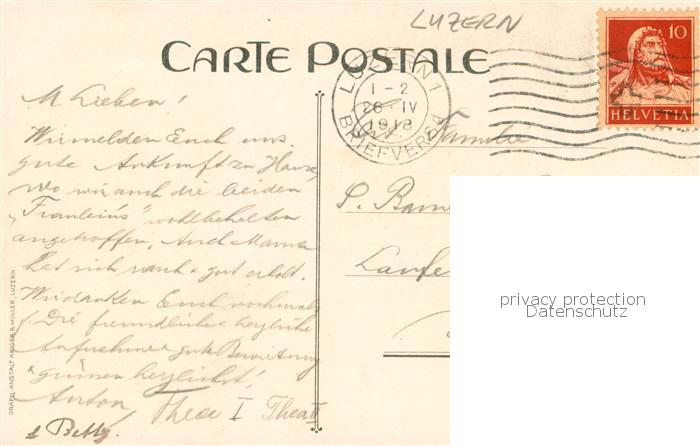 LUZERN
CARTE POSTALE
LUZERN 1
1-2
26 IV
1918
BRIEFVERSD.
10
HELVETIA
M Lieben!
Wir melden Euch uns.
gute Ankunft zu Hause,
wo wir auch die beiden
„Fräulein's" wohlbehalten
angetroffen. Auch Mama
hat sich rasch & gut erholt.
Wir danken Euch nochmals
f. Die freundliche & herzliche
Aufnahme & gute Bewirtung
& grüssen herzlichst!
Anton Thea I Thea II
& Betty.
Familie
S.
GRAPH. ANSTALT & MÜLLER, LUZERN.
privacy protection
Datenschutz